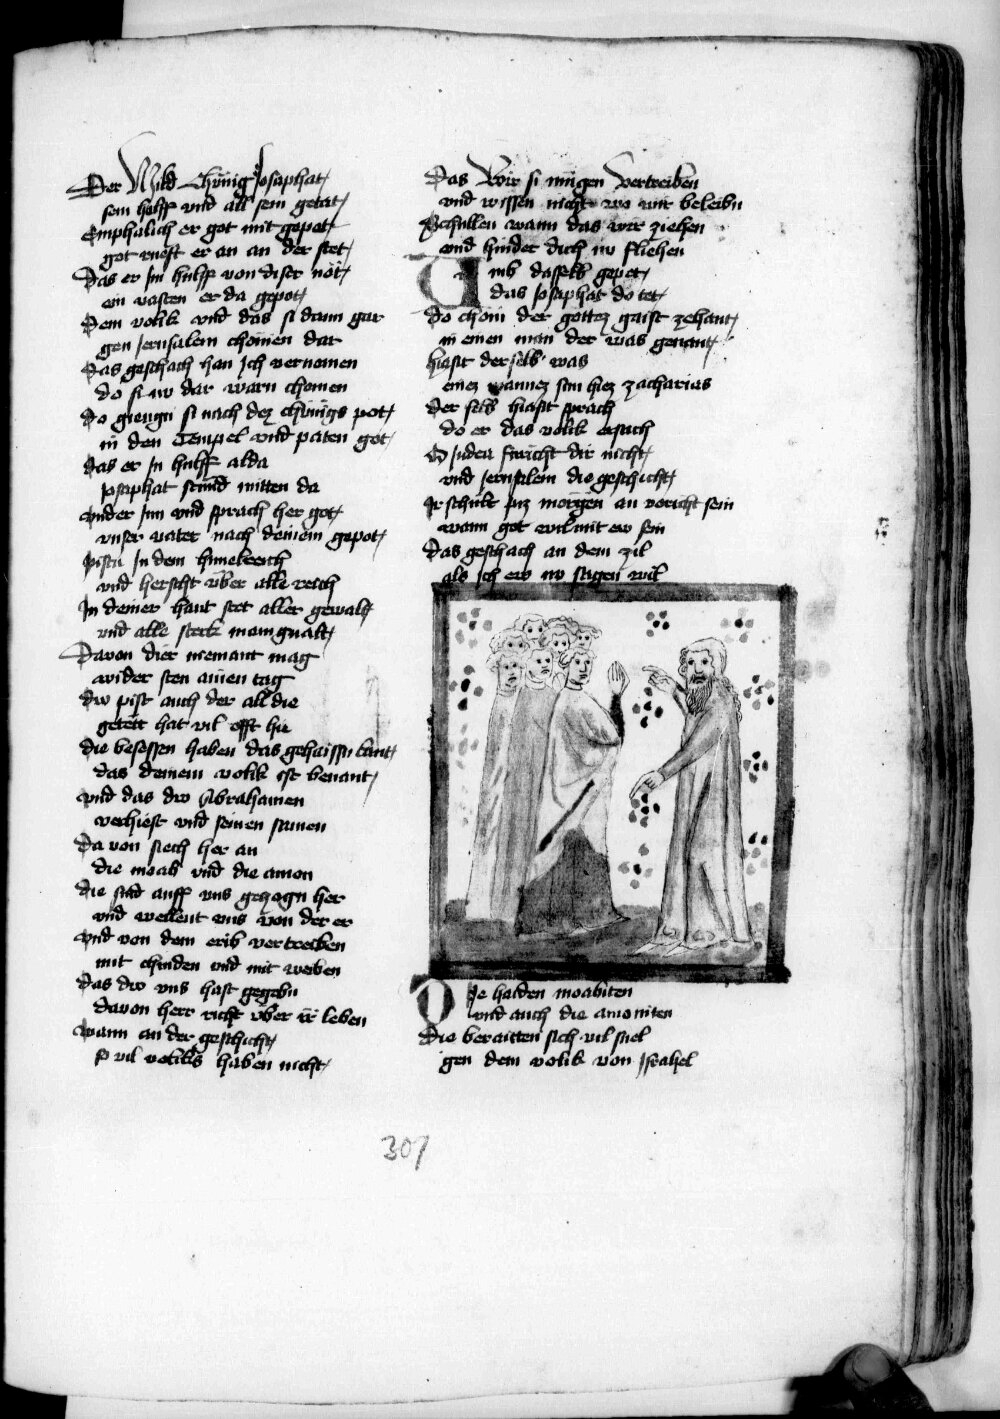 Der Mild Chünig Josaphat
sein hülff vnd all sein getat
Emphalich er got mit gepet
got ruest er an an der stet
Das er Im hülff von diser nöt
ein vasten er da gepot
Dem volik vnd das si dann gar
gen Jerusalem chömen dar
Das geschach han Ich vernomen
do si nw dar warn chomen
Do giengn si nach dez chünigs pot
in den Tempel vnd paten got
Das er In hülff alda
Josaphat stund mitten da
vnder Inn vnd sprach her got
vnser vater nach deinem gepot
Pistu In dem himelreich
vnd herscht über alle reich
In deiner hant stet aller gewalt
vnd alle sterk manigualt
Davon dier niemant mag
wider sten ainen tag
dw pist auch der all die
getött hat vil offt hie
die besessen haben das gehaissn lant
das deinem volik ist benant
vnd das dw Abrahamen
verhiest vnd seinen samen
Da von siech her an
die moab vnd die amon
die sind auff vns gezogn her
vnd wellent vns von der er
vnd von dem erib vertreiben
mit chinden vnd mit weiben
das dw vns hast gegebn
davon herr richt vber ir leben
wann an der geschicht
so vil voliks haben nicht
Das Wir si mügen Vertreiben
vnd wissen nicht wo wir beleibn
Schullen wann das wir ziehen
vnd hinder dich nw fliehen
Umb dasselb gepet
das Josaphat do tet
do chom der gottez gaist zehant
in einen man der was genant
hiasit derselb was
einez mannez sun hiez zacharias
der selb hiasit sprach
do er das volik ersach
O Juden furicht dir nicht
vnd Jerusalem die geschicht
Ir schült piz morgen an voricht sein
wann got wil mit ew sein
das geschach an dem zil
als Ich ew nw sagen wil
Die halden moabiten
vnd auch die amoniten
die beraitten sich vil snel
gen dem volik von Israhel
307